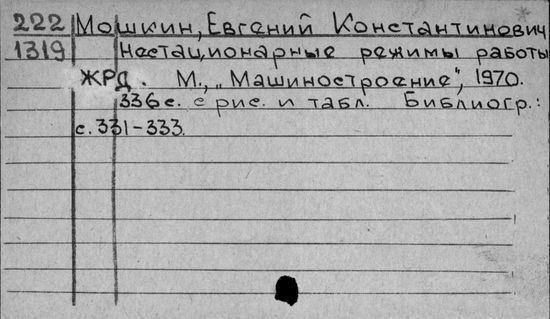 222 Мошкин, Евгений Константинович
1319 Нестационарные режимы работы
ЖРД. М., „Машиностроение", 1970.
336 с. с рис. и табл. Библиогр.:
с. 331-333.